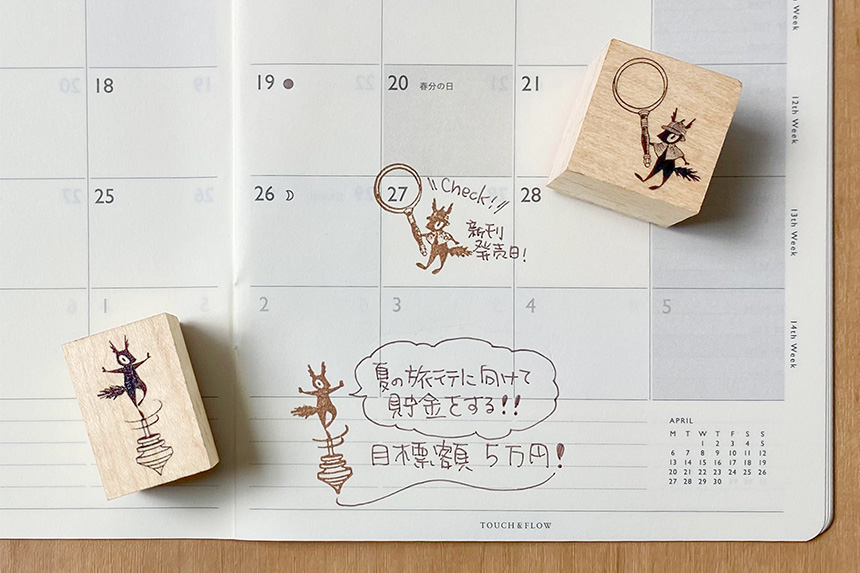 18
19
20 春分の日
21
12th Week
25
26
27
\\Check!//
28
新刊
発売日!
13th Week
1
2
3
4
5
14th Week
夏の旅行に向けて
貯金をする!!
目標額 5万円!
APRIL
M T W T F S S
1 2 3 4 5
6 7 8 9 10 11 12
13 14 15 16 17 18 19
20 21 22 23 24 25 26
27 28 29 30
TOUCH & FLOW